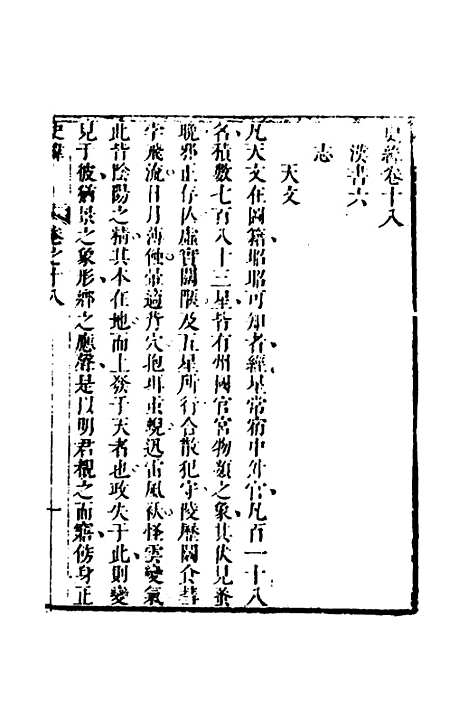 史緯卷十八
漢書六
志
天文
凡天文在圖籍昭昭可知者經星常宿中外官凡百一十八
名積數七百八十三星皆有州國官宮物類之象其伏見蚤
晚邪正存亾虛實闊陿及五星所行合散犯守陵歷鬬食彗
孛飛流日月薄蝕暈適背穴抱珥𧈫蜺迅雷風祅怪雲變氣
此皆陰陽之精其本在地而上發于天者也政失于此則變
見于彼猶景之象形鄉之應聲是以明君覩之而寤飭身正
史緯 卷之十八 一